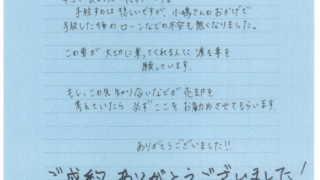 手放すのは悲しいですが、小嶋さんのおかげで
手放した後のローンなどの不安も無くなりました。
この車が大切に乗ってくれる人に渡る事を
願っています。
もし、この先知り合いなどが売却を
考えていたら必ずここをお勧めさせてもらいます。
ありがとうございました!!
ご成約ありがとうございました!